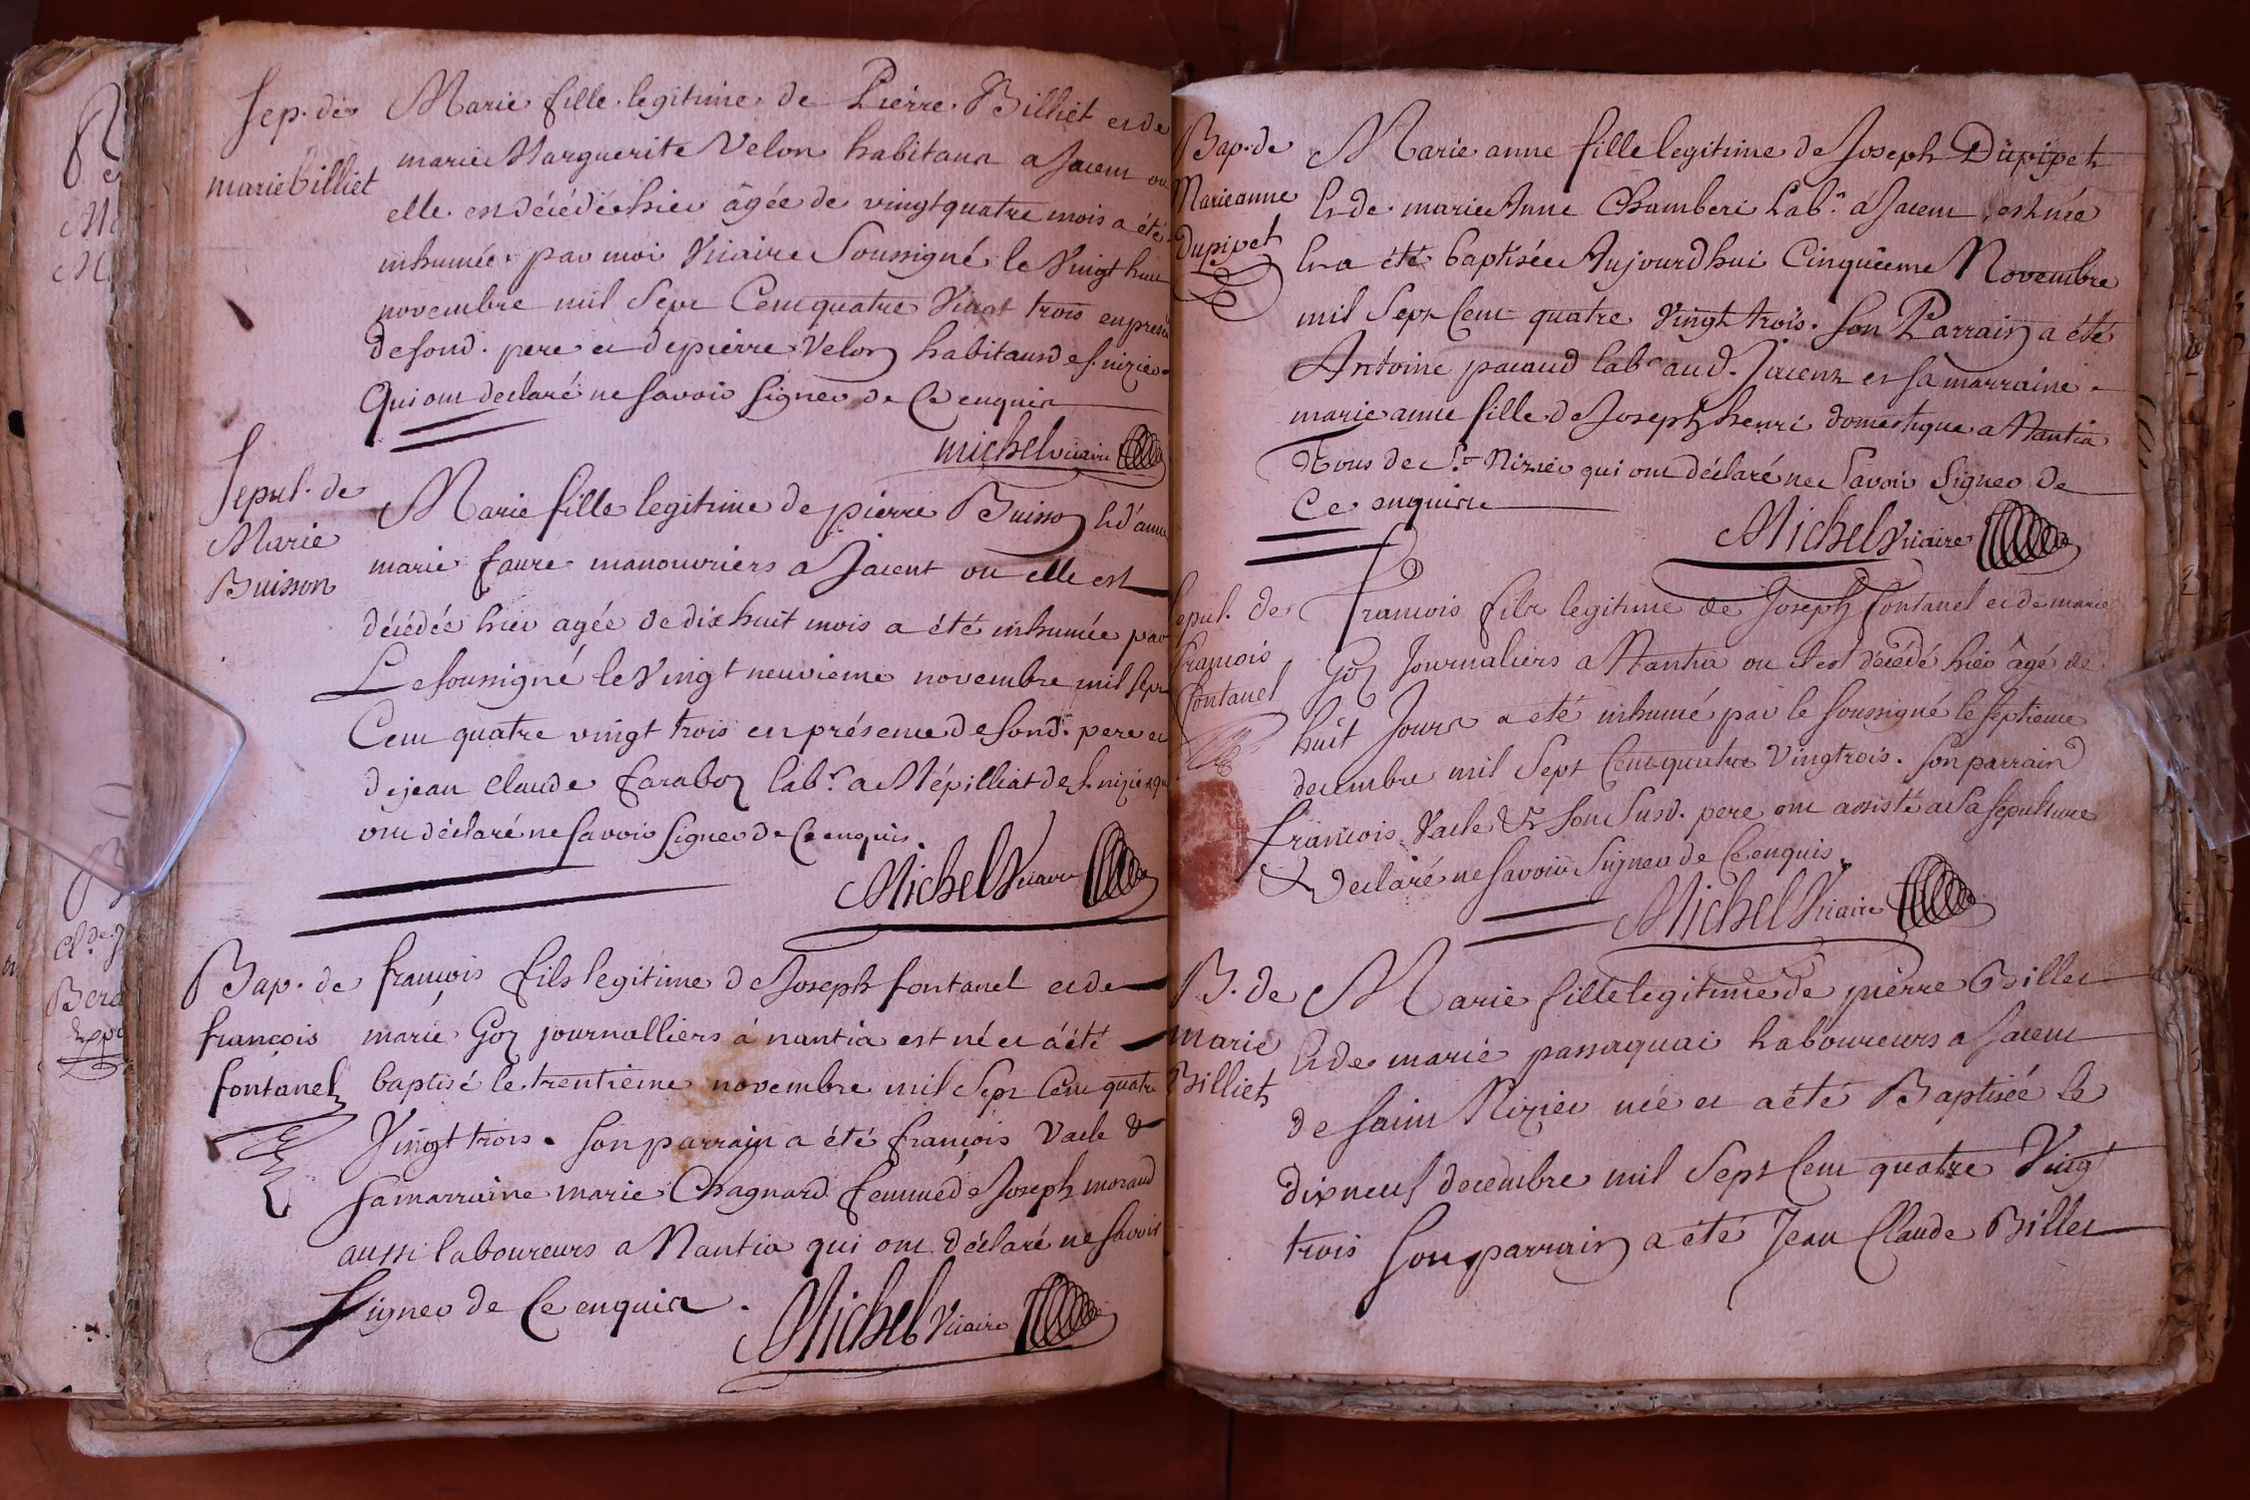 Sep. de
marie billiet
Marie fille legitime de Pierre Billiet et de
marie Marguerite Velon habitans a Jacent ou
elle est décédée hier âgée de vingt quatre mois a été
inhumée par moi Vicaire Soussigné le Vingt huit
novembre mil Sept Cent quatre Vingt trois en
de sond. pere et de pierre Velon habitans de s. nizier
Qui ont declaré ne Savoir Signer de Ce enquis
michel vicaire
Sepul. de
Marie
Buisson
Marie fille legitime de pierre Buisson & d'anne
marie faure manouvriers a Jacent ou elle est
décédée hier agée de dix huit mois a été inhumée par
Le soussigné le Vingt neuvieme novembre mil Sept
Cent quatre vingt trois en présence de sond. pere et
de jean Claude faraboz lab.r a Mépilliat de s. nizier qui
ont déclaré ne Savoir Signer de Ce enquis.
Michel Vicaire
Bap. de
françois
fontanel
françois fils legitime de Joseph fontanel et de
marie Goz journalliers á nantia est né et á été
baptisé le trentieme novembre mil Sept Cent quatre
Vingt trois. Son parrain a été françois Vacle &
Sa marraine marie Chagnard femme de Joseph morand
aussi laboureurs a Nantia qui ont déclaré ne Savoir
Signer de Ce enquis.
Michel Vicaire
Bap. de
Marieanne
dupipet
Marie anne fille legitime de Joseph Dupipet
& de marie Anne Chamberi Lab.r á Jacent, est née
& a été baptisée Aujourdhui Cinquieme Novembre
mil Sept Cent quatre Vingt trois. Son Parrain a été
Antoine pacaud lab.r aud. Jacent et sa marraine
marie anne fille de Joseph henri domestique a Nantia
tous de S.t Nizier qui ont déclaré ne Savoir Signer de
Ce enquis
Michel Vicaire
Sepul. de
françois
fontanel
francois fils legitime de Joseph fontanel et de marie
Goz Journaliers a Nantia ou il est décédé hier âgé de
huit Jours a été inhumé par le soussigné le septieme
decembre mil Sept Cent quatre Vingtrois. Son parrain
françois Vacle & son susd. pere ont assisté a Sa sepulture
& declaré ne savoir Signer de Ce enquis.
Michel Vicaire
B. de
marie
Billiet
Marie fille legitime de pierre Billet
& de marie passaquai Laboureurs a Jacent
de saint Nizier née et a été Baptisée le
dix neuf decembre mil Sept Cent quatre Vingt
trois Son parrain a été Jean Claude Billet